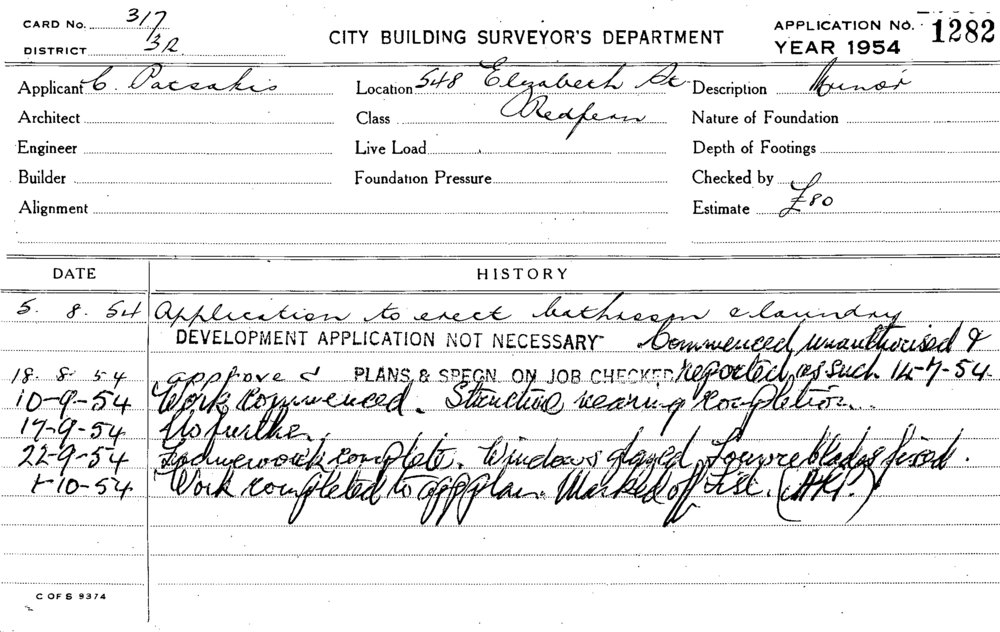 CARD No. 317
DISTRICT 3R
CITY BUILDING SURVEYOR'S DEPARTMENT
APPLICATION No. 1282
YEAR 1954
Applicant C. Patsakis Location 548 Elizabeth St Description Minor
Architect Class Redfern Nature of Foundation
Engineer Live Load Depth of Footings
Builder Foundation Pressure Checked by
Alignment Estimate £80
DATE HISTORY
5. 8. 54 Application to erect bathroom & laundry
DEVELOPMENT APPLICATION NOT NECESSARY Commenced unauthorised &
18. 8. 54 approved PLANS & SPECN. ON JOB CHECKED reported as such 14-7-54.
10-9-54 Work commenced. Structure nearing completion.
17-9-54 No further.
22-9-54 complete. Windows glazed, Louvre blades fixed.
1-10-54 Work completed to app plan. Marked off List.
C OF S 9374